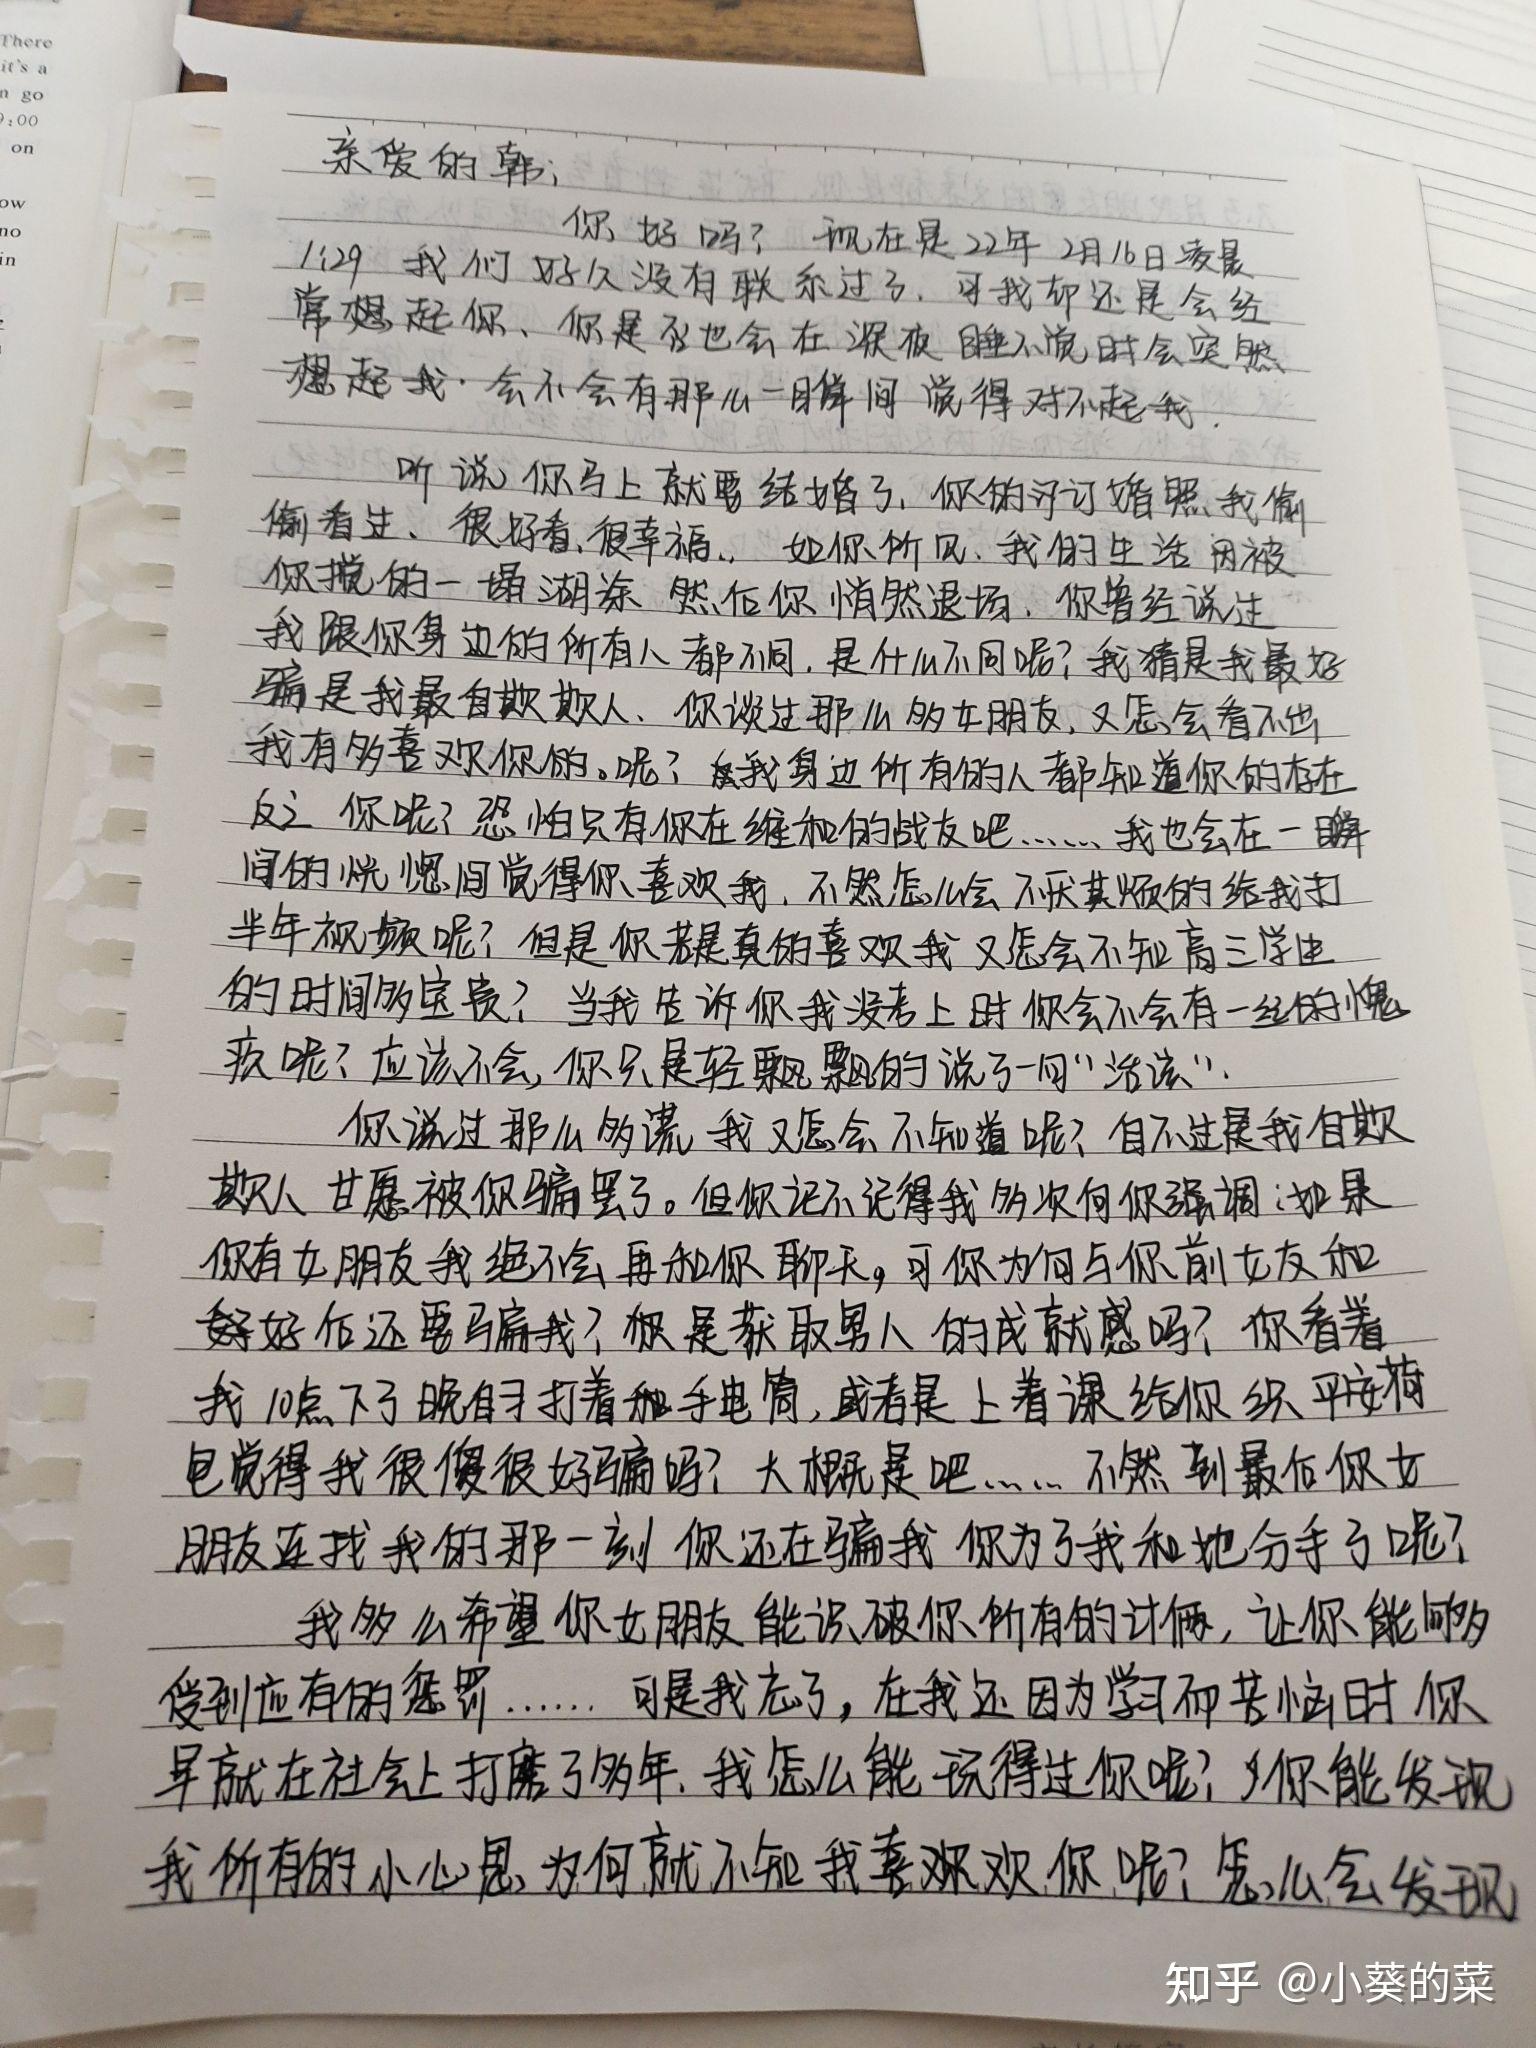 There
it's a
n go
9:00
on
ow
no
in
亲爱的韩:
你好吗?现在是22年2月16日凌晨
1:29 我们好久没有联系过了,可我却还是会经
常想起你、你是否也会在深夜睡不觉时会突然
想起我.会不会有那么一瞬间觉得对不起我.
听说你马上就要结婚了,你的订婚照我偷
偷看过、很好看、很幸福.,如你所见.我的生活因被
你搅的一塌湖涂 然后你悄然退场.你曾经说过
我跟你身边的所有人都不同.是什么不同呢?我猜是我最好
骗是我最自欺欺人、你谈过那么多女朋友,又怎会看不出
我有多喜欢你的。呢?我身边所有的人都知道你的存在
反之 你呢?恐怕只有你在维和的战友吧……我也会在一瞬
间的恍惚间觉得你喜欢我.不然怎么会不厌其烦的给我打
半年视频呢?但是你若是真的喜欢我又怎会不知高三学生
的时间多宝贵?当我告诉你我没考上时你会不会有一丝的愧
疚呢?应该不会,你只是轻飘飘的说了一句“活该”.
你说过那么多谎 我又怎会不知道呢?自不过是我自欺
欺人 甘愿被你骗罢了。但你记不记得我多次向你强调:如果
你有女朋友我绝不会再和你聊天,可你为何与你前女友和
好后还要骗我?很是获取男人的成就感吗?你看着
我10点下了晚自习打着手电筒,或者是上着课给你织平安荷
包觉得我很傻很好骗吗?大概是吧……不然到最后你女
朋友连找我的那一刻 你还在骗我 你为了我和她分手了呢?
我多么希望你女朋友能识破你所有的计俩,让你能够多
受到应有的惩罚……可是我忘了,在我还因为学习而苦恼时你
早就在社会上打磨了多年.我怎么能玩得过你呢?你能发现
我所有的小心思、为何就不知我喜欢欢你呢?怎么会发现
知乎 @小葵的菜